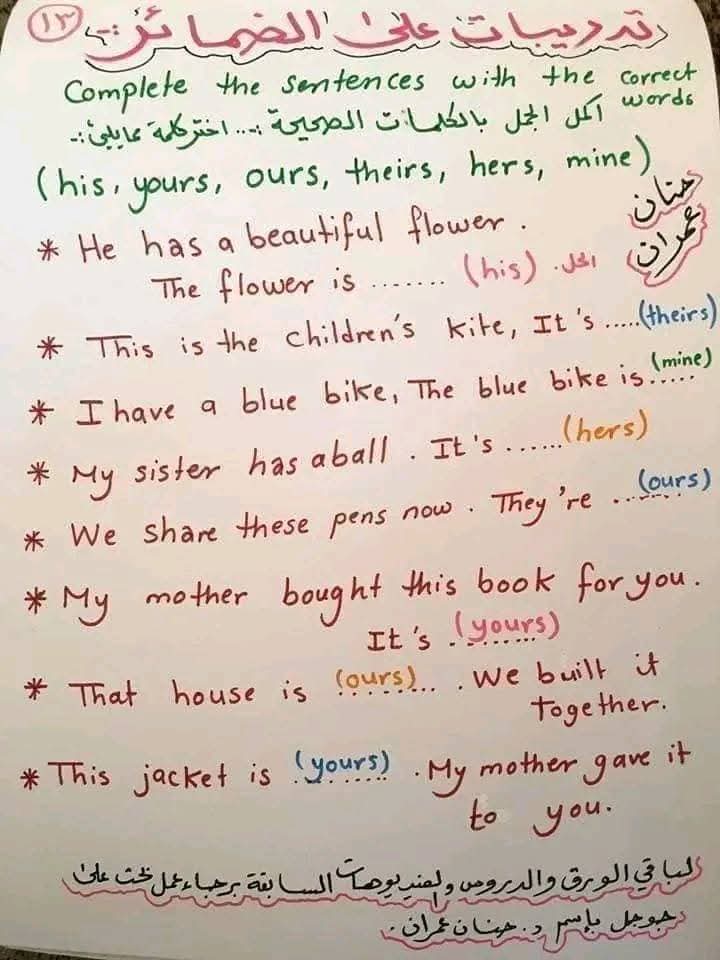 ١٣ تدريبات على الضمائر :-
Complete the sentences with the correct words
أكمل الجمل بالكلمات الصحيحة :-.. اختر كلمة مما يلي :-
(his, yours, ours, theirs, hers, mine)
حنان عمران
* He has a beautiful flower.
The flower is ....... (his) الحل.
* This is the children's kite, It's .....(theirs)
* I have a blue bike, The blue bike is..... (mine)
* My sister has a ball. It's ......(hers)
* We share these pens now. They're ....... (ours)
* My mother bought this book for you.
It's (yours)
* That house is (ours) . We built it
together.
* This jacket is (yours) . My mother gave it
to you.
لباقي الورق والدروس والفيديوهات السابقة برجاء عمل بحث على
جوجل بإسم د. حنان عمران.